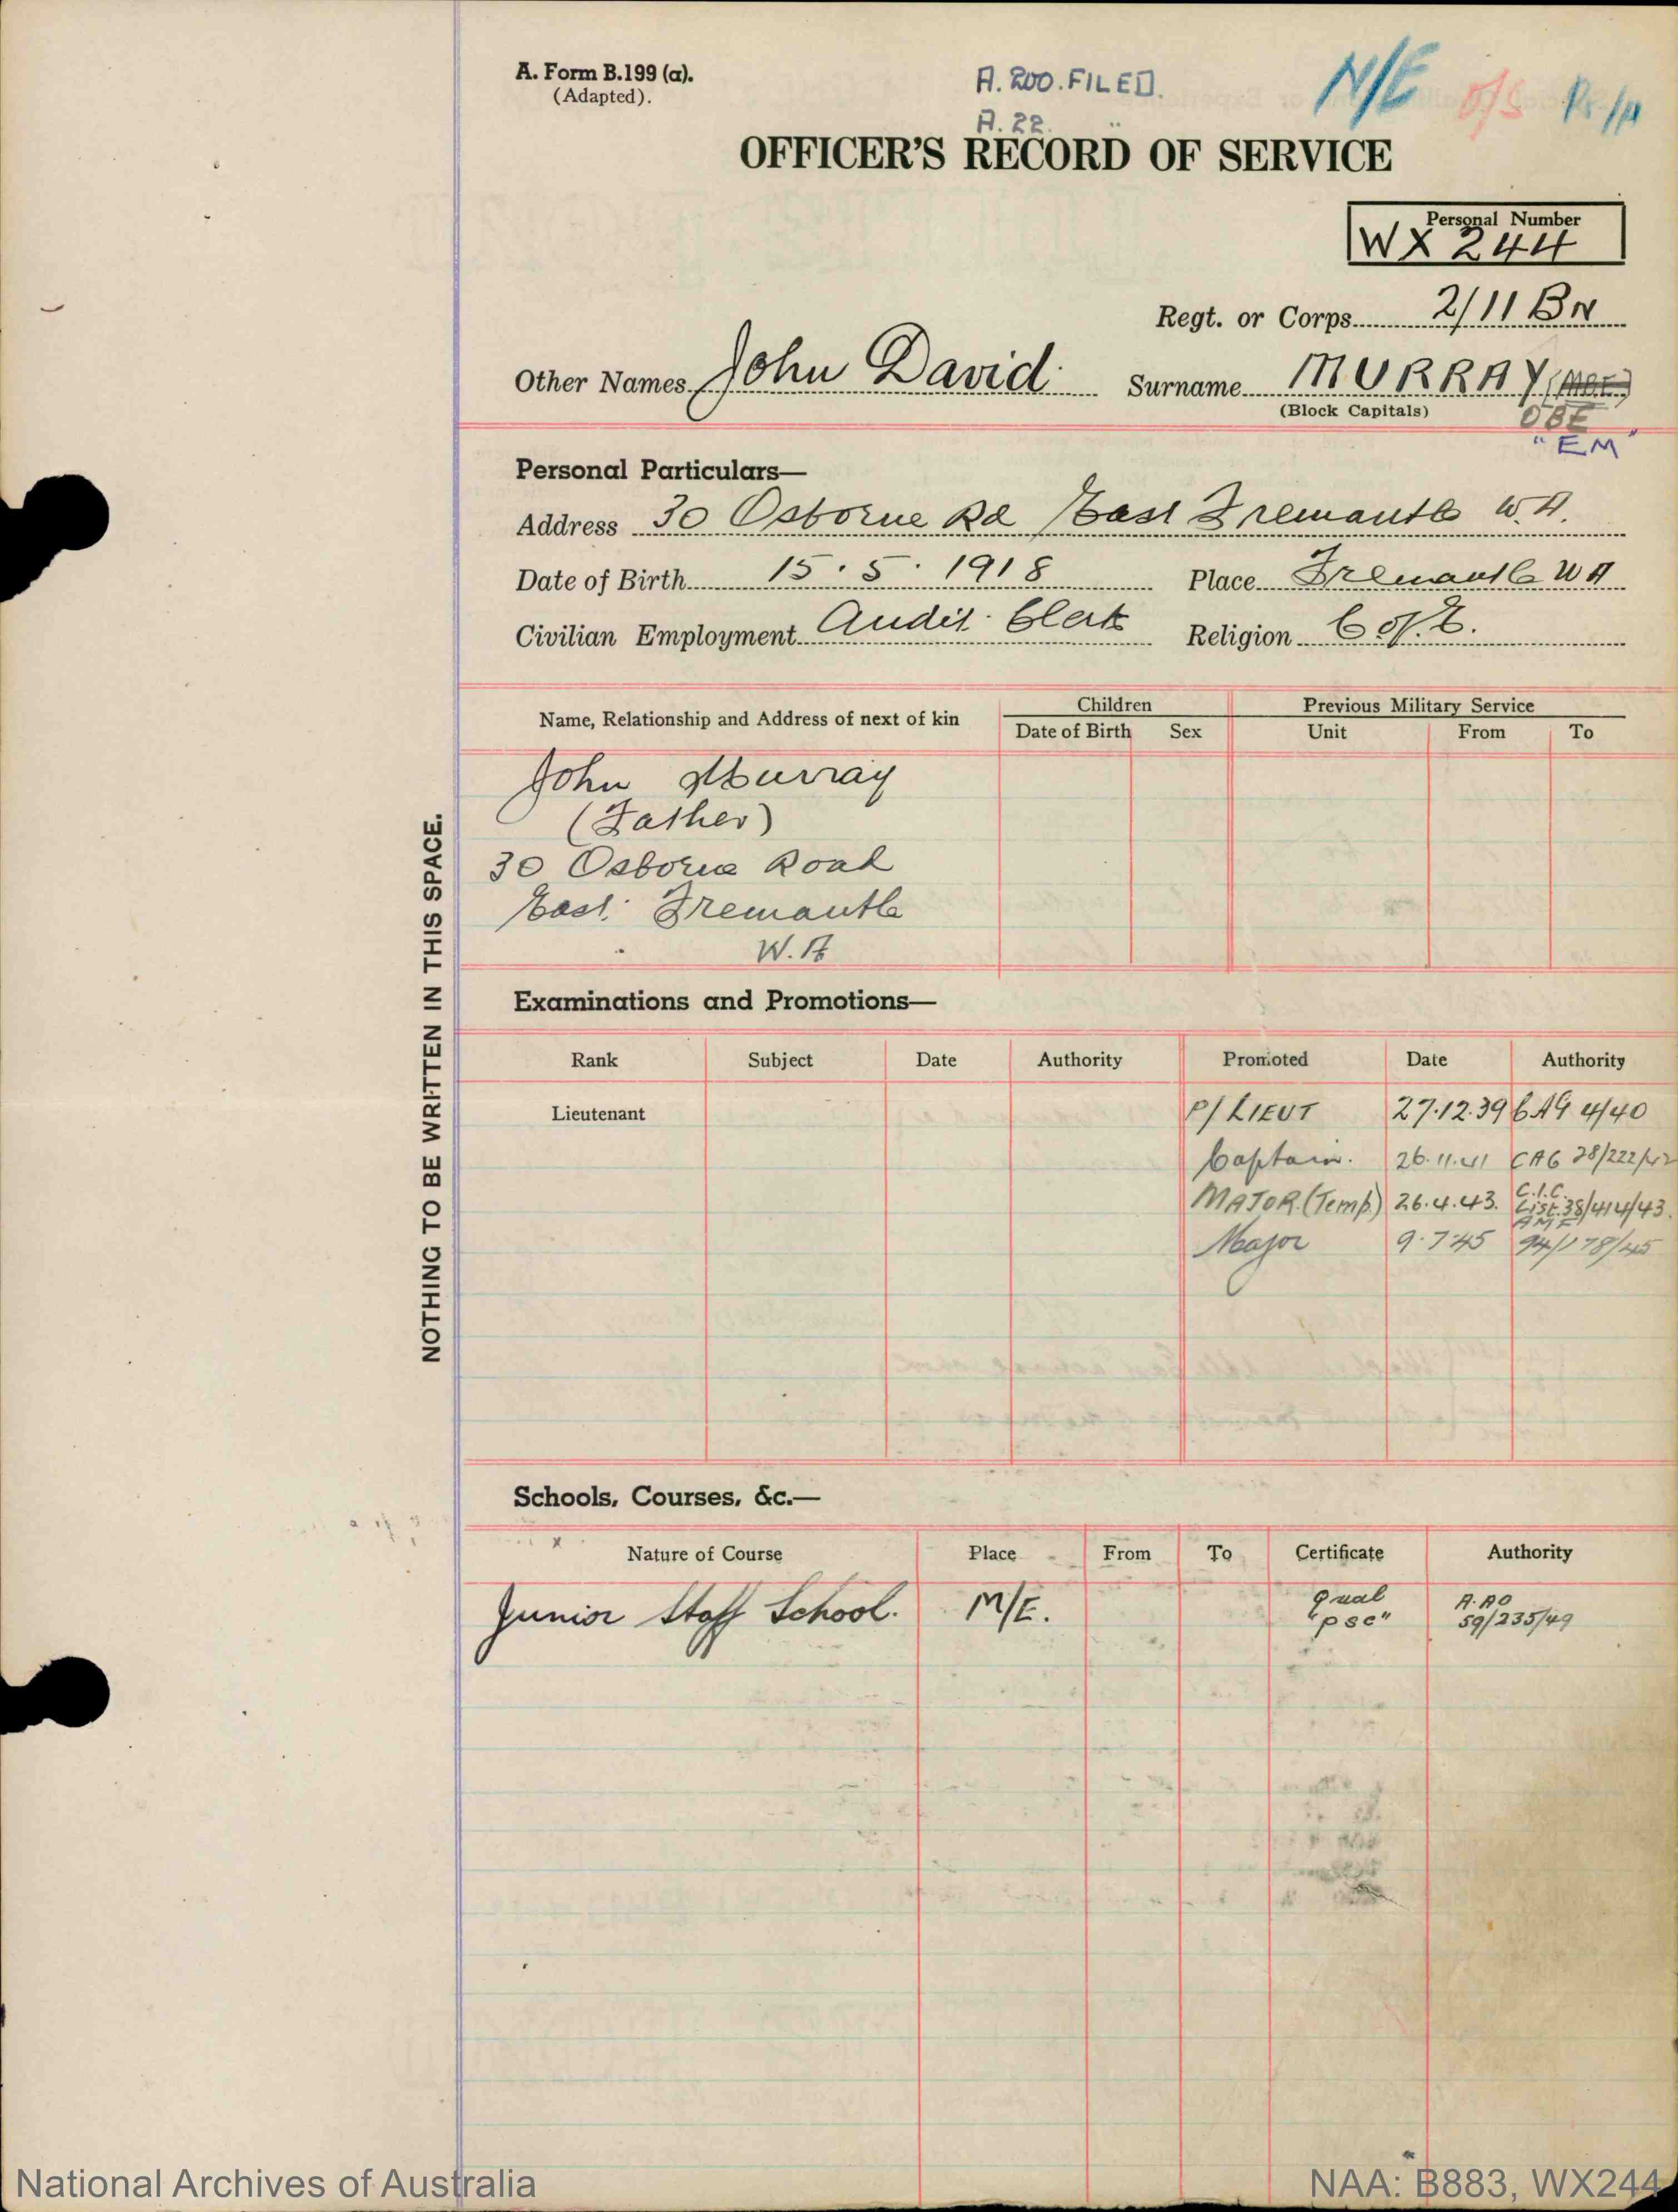 A. Form B.199 (a).
(Adapted).
A. 200. FILED.
A. 22.
N/E
OFFICER'S RECORD OF SERVICE
Personal Number
WX 244
Regt. or Corps 2/11 BN
Other Names John David Surname MURRAY
(Block Capitals)
OBE
"EM"
Personal Particulars—
Address 30 Osborne Rd East Fremantle W.A.
Date of Birth 15.5.1918 Place Fremantle WA
Civilian Employment Audit Clerk Religion C of E.
Name, Relationship and Address of next of kin Children Previous Military Service
Date of Birth Sex Unit From To
John Murray
(Father)
30 Osborne Road
East Fremantle
W.A
NOTHING TO BE WRITTEN IN THIS SPACE.
Examinations and Promotions—
Rank Subject Date Authority Promoted Date Authority
Lieutenant P/ LIEUT 27.12.39 4/40
Captain. 26.11.41 CAG 28/222/42
MAJOR (Temp) 26.4.43. C.I.C. List. 38/414/43.
Major 9.7.45 94/178/45
Schools, Courses, &c.—
Nature of Course Place From To Certificate Authority
Junior Staff School. M/E. Qual "psc" A.AO 59/235/49
National Archives of Australia NAA: B883, WX244